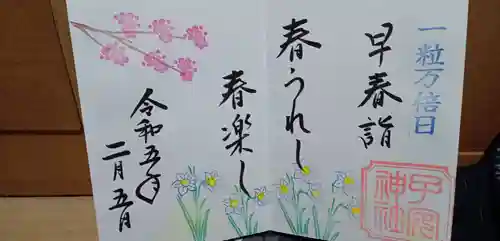 一粒万倍日
早春詣
春うれし
春楽し
令和五年
二月五日
神社